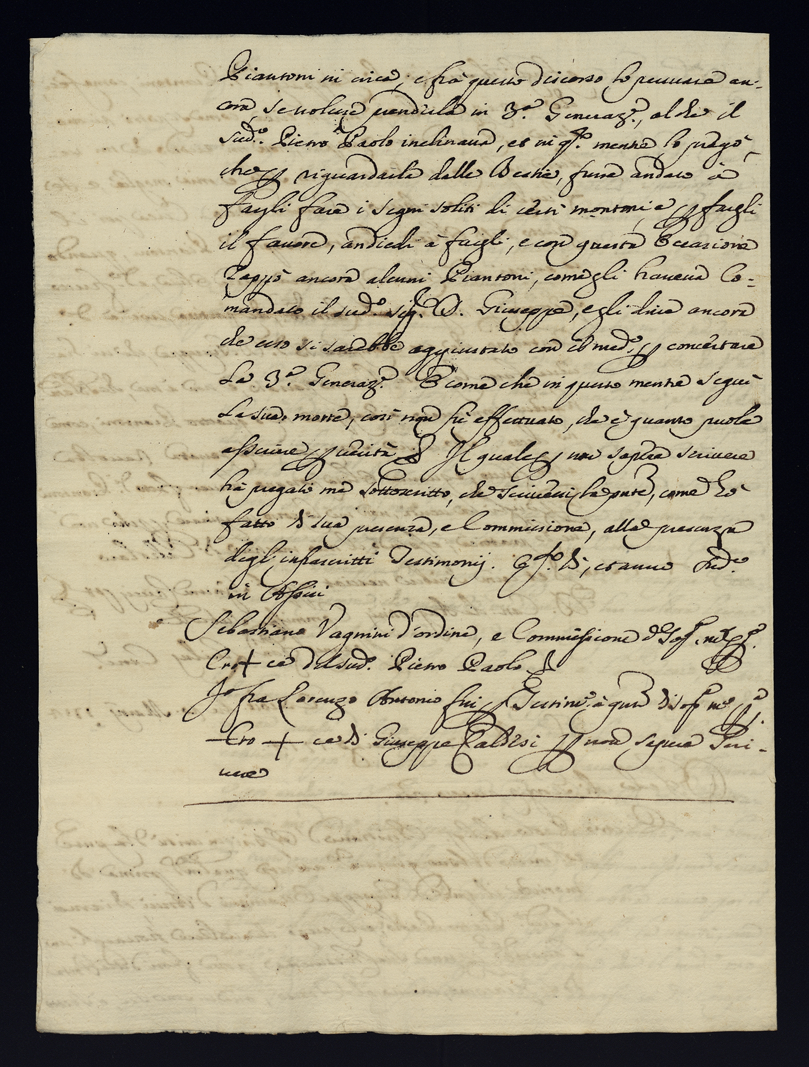 Piantoni in circa, e frà questo discorso lo
cora, se voleva venderla in 3.ª Generaz.e, al che il
sud.o Pietro Paolo inclinava, et in q.to mentre lo pregò,
che riguardarla dalle Bestie, fusse andato à
fargli fare i segni soliti di certi montoni e p fargli
il favore, andiedi à fargli, e con questa Occasione
Tappò ancora alcuni Piantoni, come gli haveva Co=
mandato il sud.o Sig. D. Giuseppe, egli dice ancora
che esso si sarebbe aggiustato con il med.o p concertare
La 3.ª Generaz.e E come che in questo mentre seguì
La sua morte, così non fù effettuato, che è quanto
verità Il quale p non sapere scrivere
hà pregato me sottoscritto, che scrivessi la pnte, come hò
fatto di sua presenza, e Commissione, alla presenza
degl' infrascritti Testimonij. di, et anno sud.o
in
Sebastiano Vagnini d'ordine, e Commissione
Cro + ce del sud.o Pietro Paolo
Io fra Lorenzo Antonio fui Testim.o à q.to di sop.a
Cro + ce di Giuseppe Caldesi p non sapere Scri=
vere